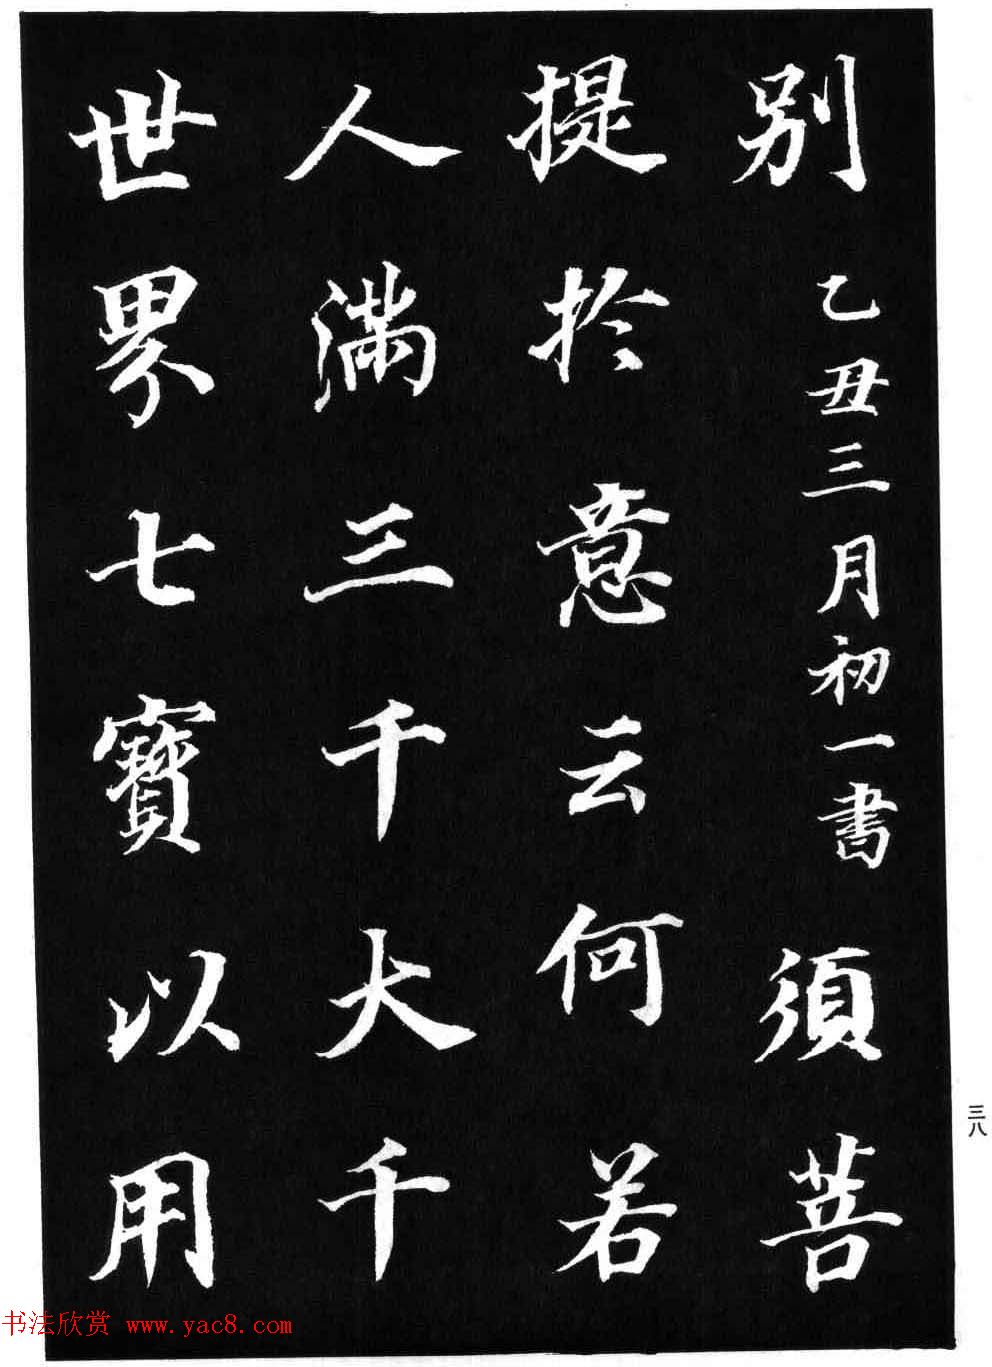 别 乙丑三月初一書 須菩
提於意云何若
人滿三千大千
世界七寶以用
三八
书法欣赏 www.yac8.com